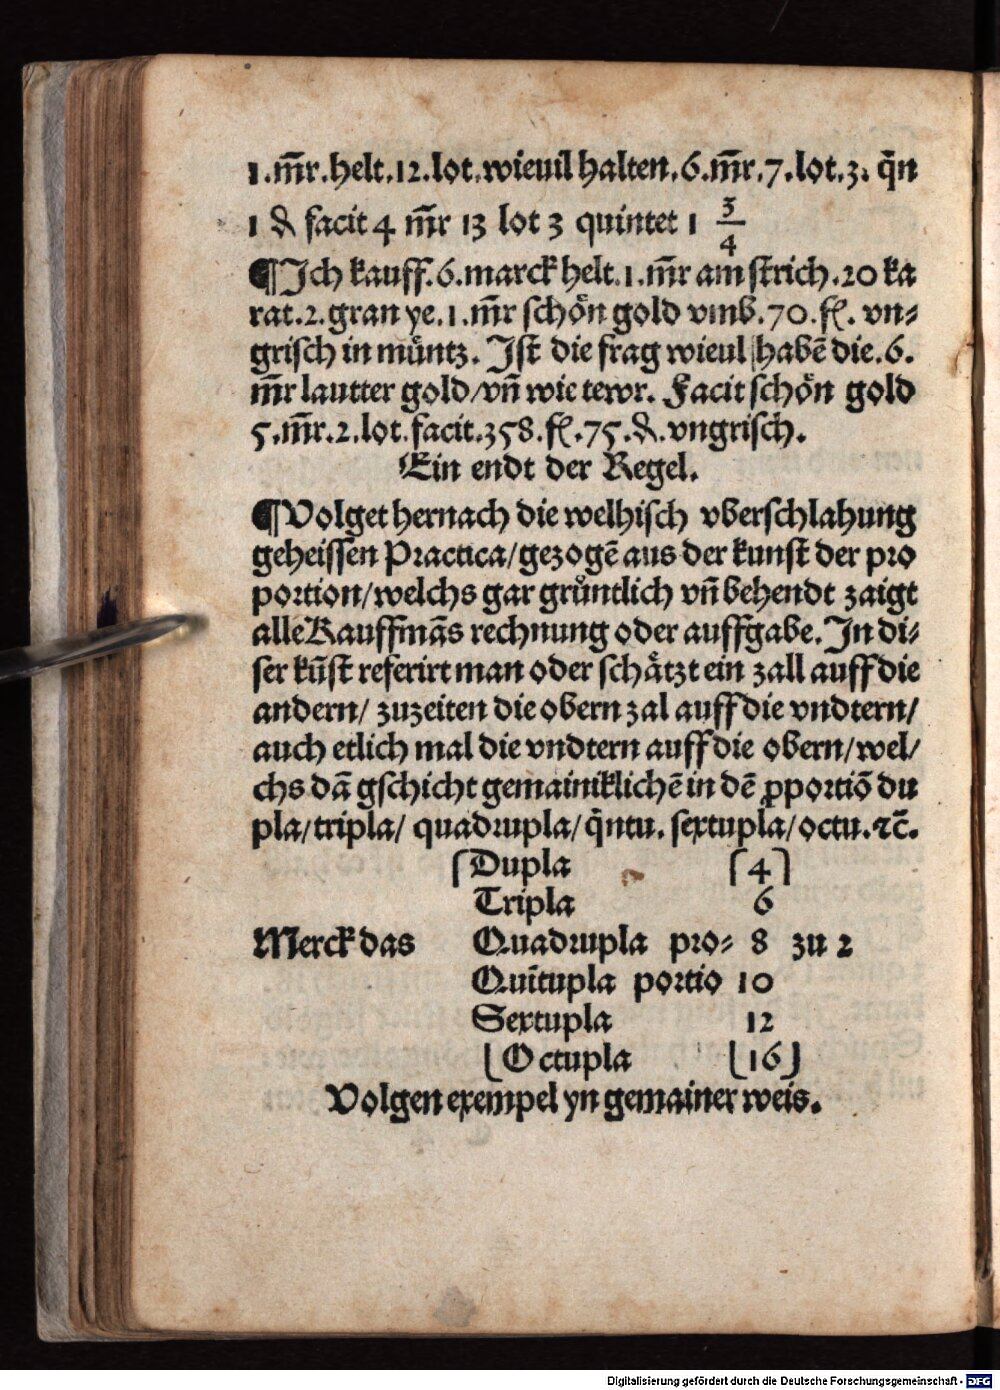 1.m̄r.helt.12.lot.wieuil halten.6.m̄r.7.lot.3. q̄n
1 ₰ facit 4 m̄r 13 lot 3 quintet 1 3/4
¶Ich kauff.6.marck helt.1.m̄r am strich.20 ka
rat.2.gran ye.1.m̄r schön gold vmb.70.fl. vn⸗
grisch in müntz. Ist die frag wieul habē die.6.
m̄r lautter gold/vn̄ wie tewr. Facit schön gold
5.m̄r.2.lot.facit.358.fl.75.₰.vngrisch.
Ein endt der Regel.
¶Volget hernach die welhisch vberschlahung
geheissen Practica/gezogē aus der kunst der pro
portion/welchs gar grůntlich vn̄ behendt zaigt
alle Kauffmās rechnung oder auffgabe. In di⸗
ser kūst referirt man oder schätzt ein zall auff die
andern/ zuzeiten die obern zal auff die vndtern/
auch etlich mal die vndtern auff die obern/wel/
chs dā gschicht gemainiklichē in dē ꝓportiō du
pla/tripla/ quadrupla/q̄ntu. sextupla/octu.ꝛc̄.
Dupla 4
Tripla 6
Merck das Quadrupla pro⸗ 8 zu 2
Quītupla portio 10
Sextupla 12
Octupla 16
Volgen exempel yn gemainer weis.
Digitalisierung gefördert durch die Deutsche Forschungsgemeinschaft - DFG